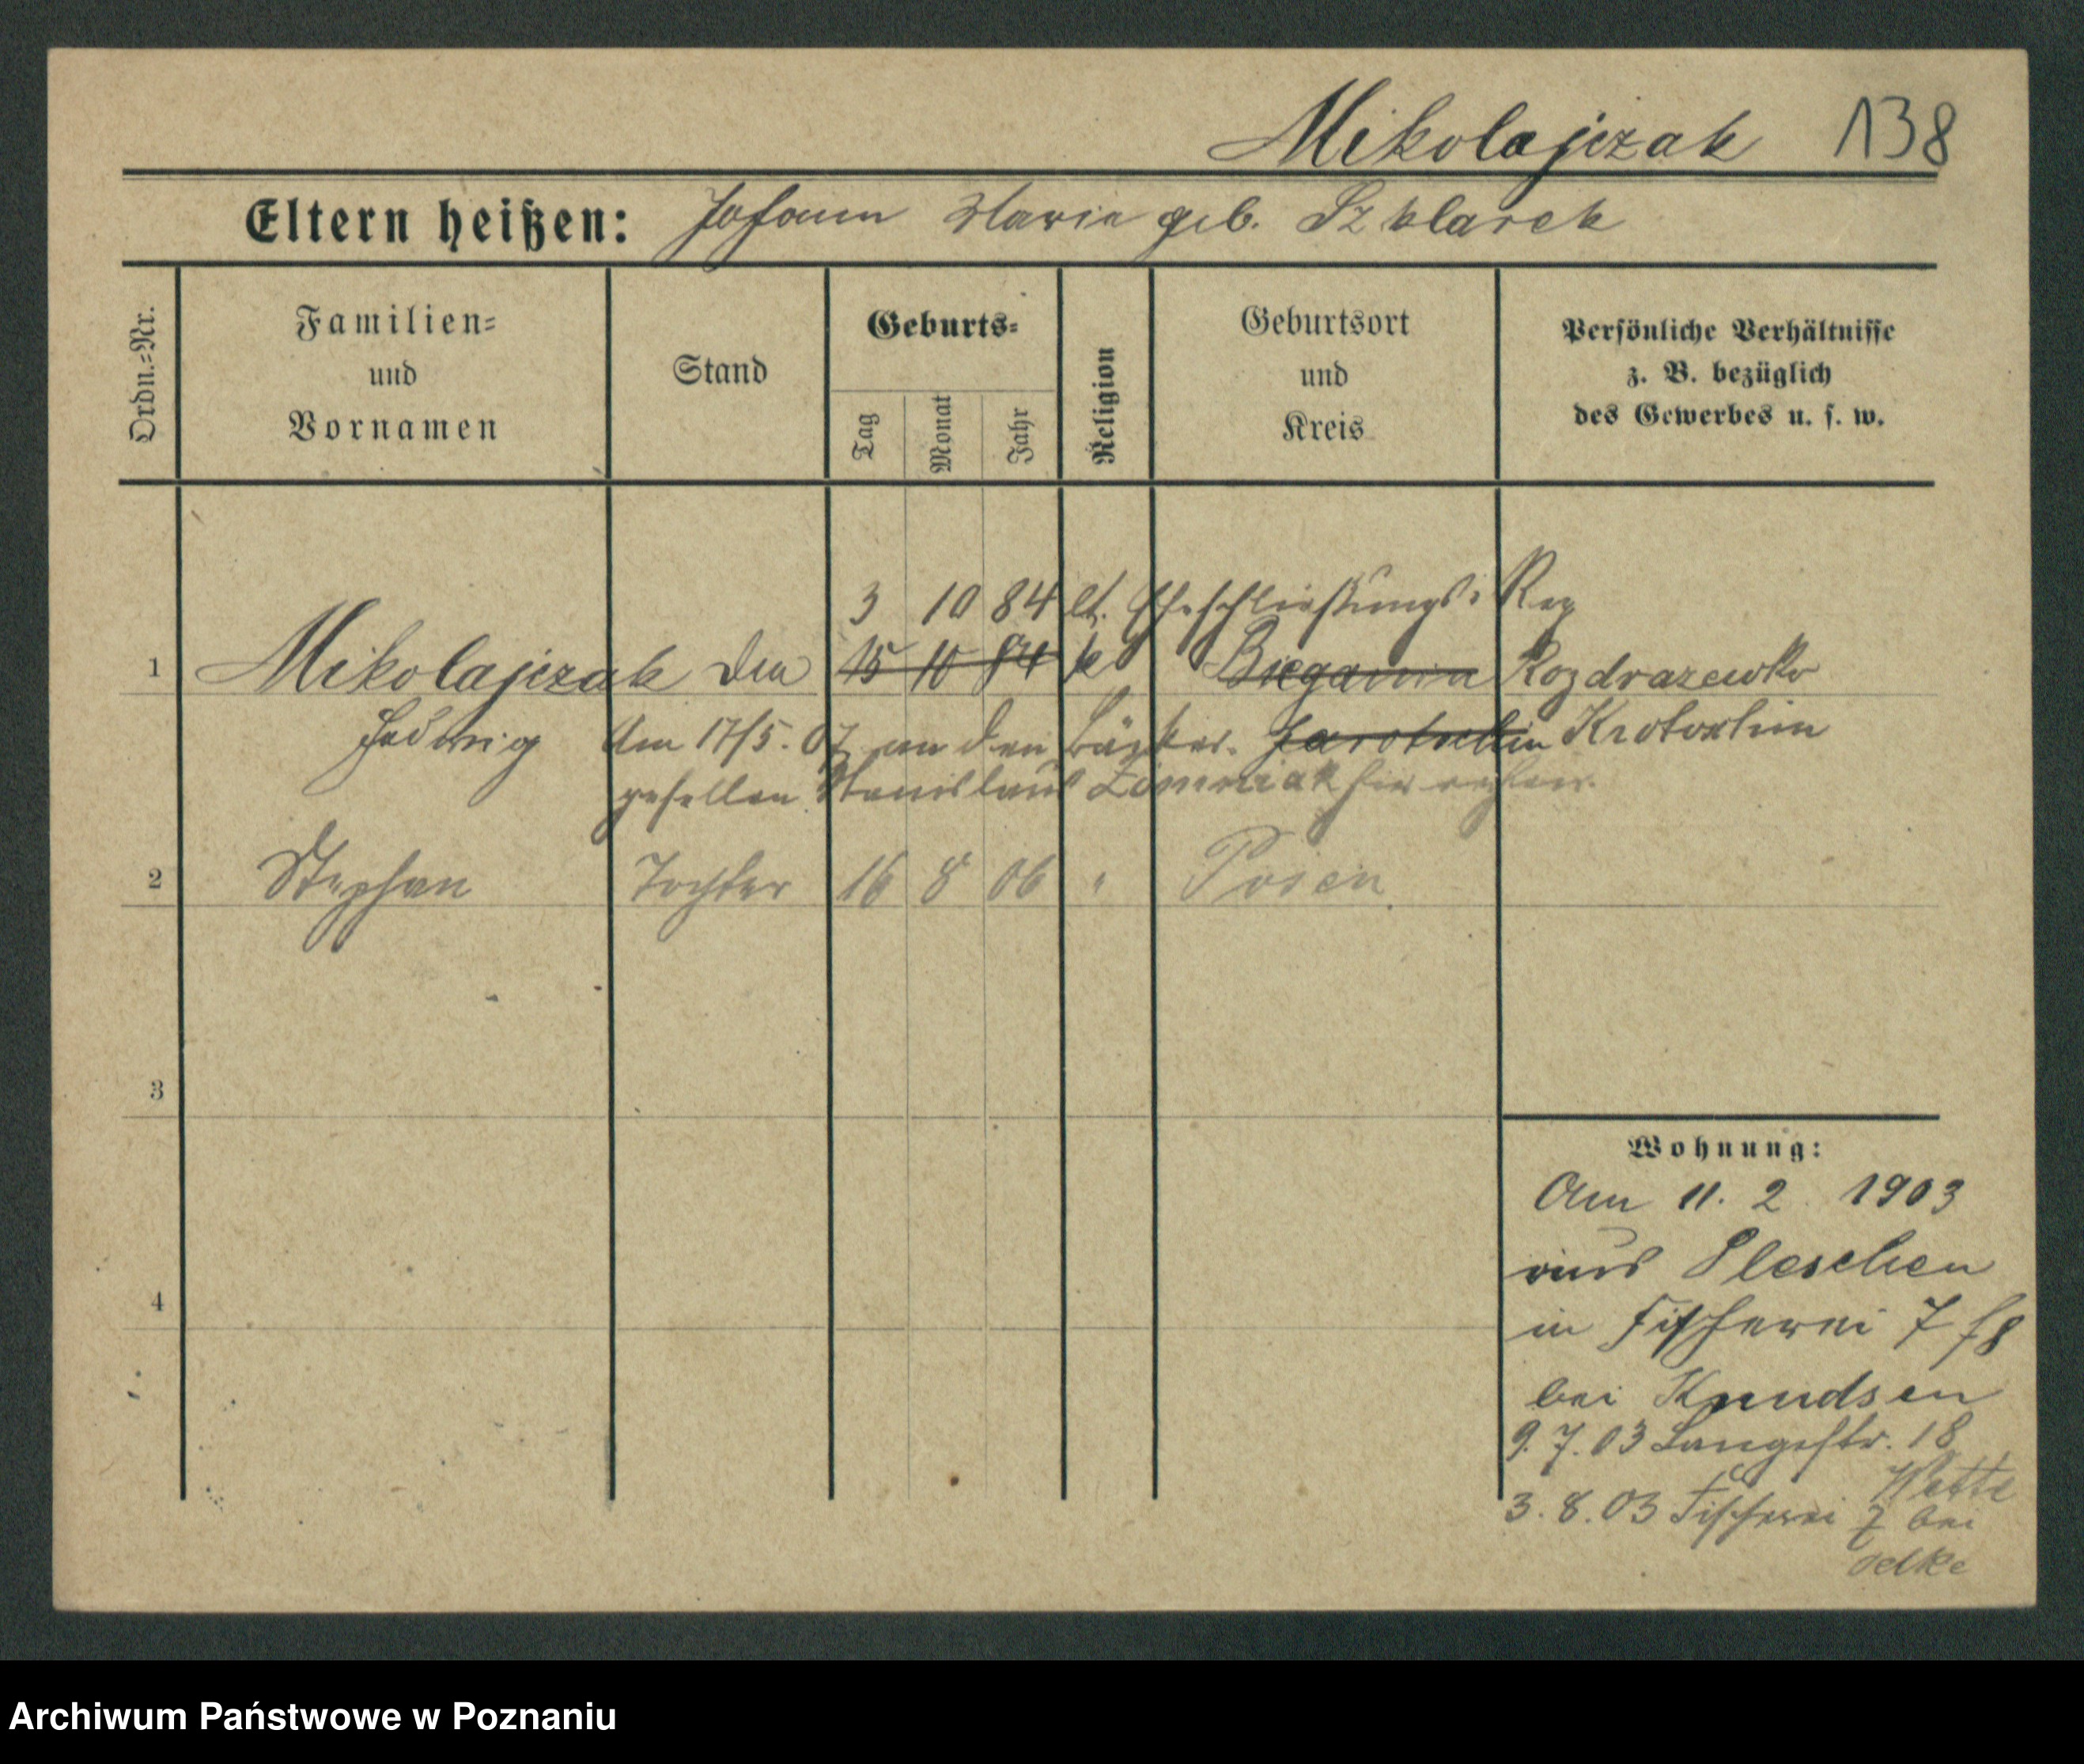 Mikolajczak 138
Eltern heißen: Johann Marie geb. Szklarek
Ordn.=Nr.
Familien=
und
Vornamen
Stand
Geburts=
Tag
Monat
Jahr
Religion
Geburtsort
und
Kreis
Persönliche Verhältnisse
z. B. bezüglich
des Gewerbes u. s. w.
3 10 84 lt. Eheschließungs Reg
1 Mikolajczak 15 10 84 k Bieganin Rozdrazewko
Hedwig Am 17/5. 07 an den Bäcker= Jarotschin Krotoschin
gesellen Stanislaus
2 Stephan Tochter 16 8 06 " Posen
3
4
Wohnung:
Am 11. 2. 1903
aus Pleschen
in Fischerei 7
bei Knudsen
9. 7. 03 Langestr. 18
Wette
3. 8. 03 Fischerei 7 bei
Oelke
Archiwum Państwowe w Poznaniu